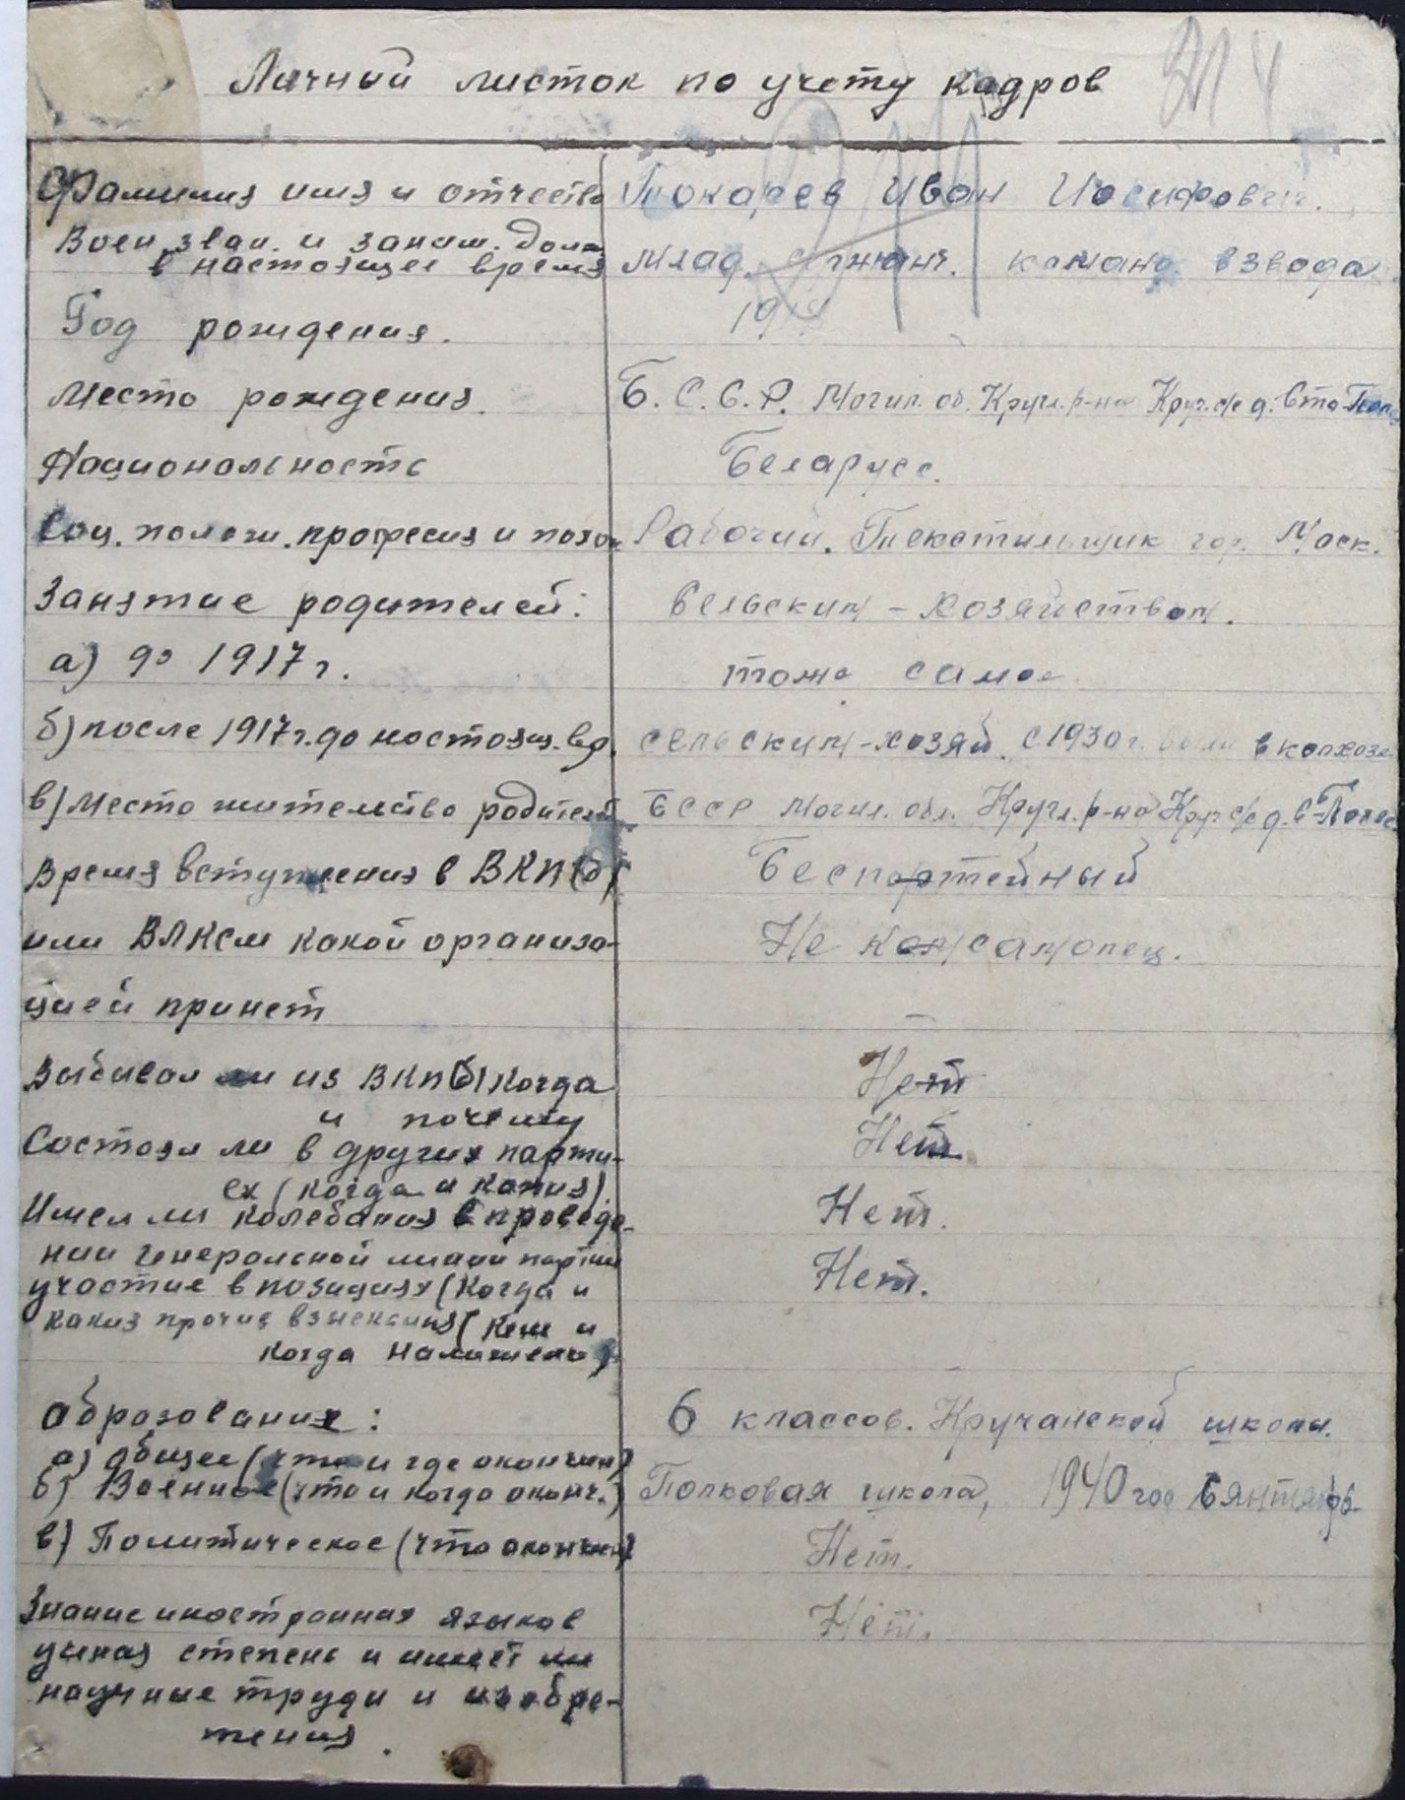 Личный листок по учету кадров
214
Фамилия имя и отчество Токарев Иван Иосифович.
Воен. зван. и заним. долж.
в настоящее время Млад. сержант. команд. взвода
Год рождения. 19
Место рождения. Б. С. С. Р. Могил. об. Кругл. р-на Круч. с/с д.
Национальность Беларусс.
Соц. полож. професия и Рабочий. Текстильщик гор. Моск.
Занятие родителей: Сельским-хозяйством.
а) до 1917 г. тоже самое
б) после 1917 г. до настоящ. вр. сельским-хозяй. с 1930 г. были в колхозе
в) Место жительство родителей БССР Могил. обл. Кругл. р-на Круч с/с д.
Время вступления в ВКП(б) Беспартейный
или ВЛКСМ какой организа- Не комсамолец.
цией принет
Выбивал ли из ВКП(б) когда Нет
и почему
Состоял ли в других парти- Нет
ех (когда и каких).
Имел ли колебания в проведе- Нет.
нии генеральной линии партии
участие в позициях (когда и Нет.
какия прочия взыскания (кем и
когда наложены)
Образование: 6 классов. Кручанской школы.
а) общее (что и где окончил)
б) Военное (что и когда оконч.) Полковая школа, 1940 год Сянтябрь
в) Политическое (что окончил) Нет.
Знание иностранних языков Нет.
ученая степень и имеет ли
научные труди и изобре-
тения.